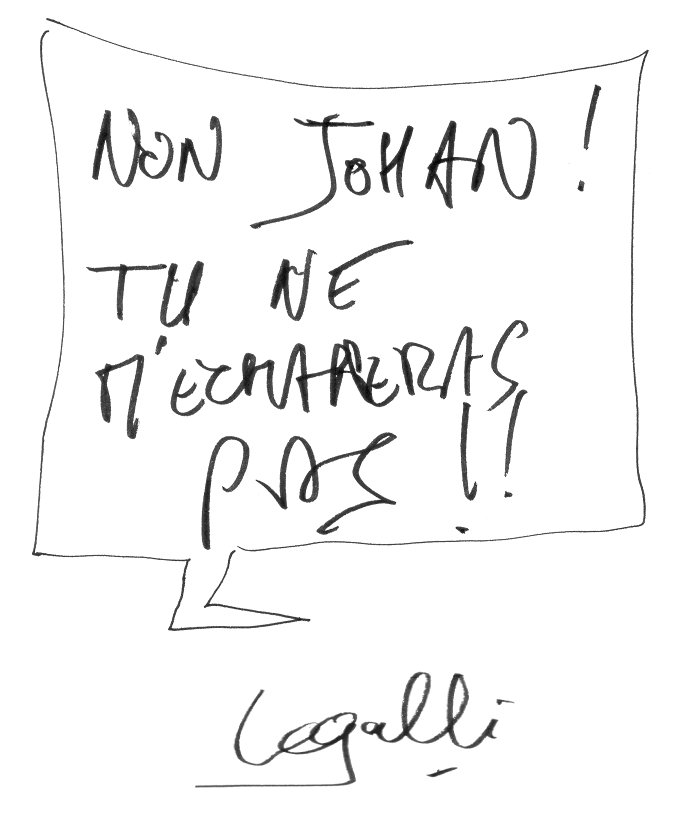 NON JOHAN !
TU NE
M'ECHAPERAS
PAS !!
Cagalli